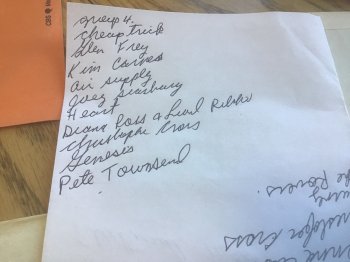 CBS
group 4.
cheap trick
Glen Frey
Kim Carnes
air supply
Joey Scarbury
Heart
Diana Ross & Lionel Richie
Christopher Cross
Genesis
Pete Townsend
the Rovers.
Christopher Cross